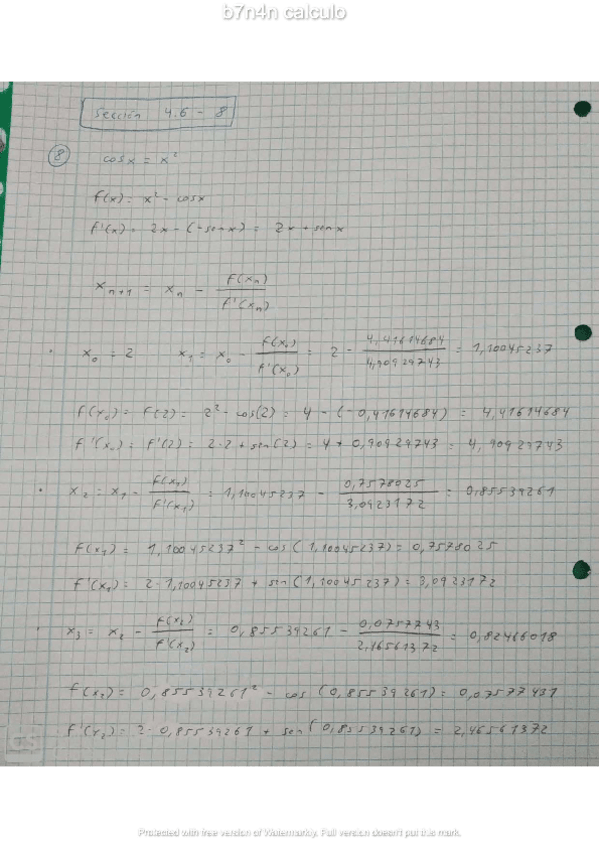 b7n4n calculo
Sección 4.6 - 8
8 cosx = x²
f(x) = x² - cosx
f'(x) = 2x - (-senx) = 2x + senx
x_{n+1} = x_n - f(x_n) / f'(x_n)
· x₀ = 2 x₁ = x₀ - f(x₀) / f'(x₀) = 2 - 4,41614684 / 4,90929743 = 1,10045237
f(x₀) = f(2) = 2² - cos(2) = 4 - (-0,41614684) = 4,41614684
f'(x₀) = f'(2) = 2·2 + sen(2) = 4 + 0,90929743 = 4,90929743
· x₂ = x₁ - f(x₁) / f'(x₁) = 1,10045237 - 0,7578025 / 3,0923172 = 0,85539261
f(x₁) = 1,10045237² - cos(1,10045237) = 0,7578025
f'(x₁) = 2·1,10045237 + sin(1,10045237) = 3,0923172
· x₃ = x₂ - f(x₂) / f'(x₂) = 0,85539261 - / = 0,82466018
f(x₂) = 0,85539261² - cos(0,85539261) = 0,07577431
f'(x₂) = 2·0,85539261 + sen(0,85539261) = 2,46561372
Protected with free version of Watermarkly. Full version doesn't put this mark.